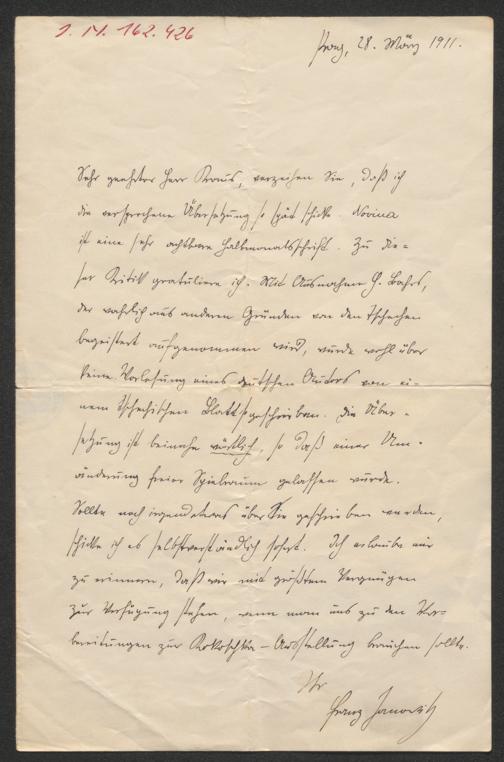 J. N. 162.426
Prag, 28. März 1911.
Sehr geehrter Herr Kraus, verzeihen Sie, daß ich
die versprochene Übersetzung so spät schicke. Novina
ist eine sehr achtbare Halbmonatsschrift. Zu die-
ser Kritik gratuliere ich. Mit Ausnahme H. Bahrs,
der wahrlich aus anderen Gründen von den Tschechen
begeistert aufgenommen wird, wurde wohl über
keine Vorlesung eines deutschen Autors von ei-
nem tschechischen Blatt so geschrieben. Die Über-
setzung ist beinahe wörtlich, so daß einer Um-
änderung freier Spielraum gelassen wurde.
Sollte noch irgendetwas über Sie geschrieben werden,
schicke ich es selbstverständlich sofort. Ich erlaube mir
zu erinnern, daß wir mit größtem Vergnügen
zur Verfügung stehen, wenn man uns zu den Vor-
bereitungen zur Kokoschka-Ausstellung brauchen sollte.
Ihr
Franz Janowitz